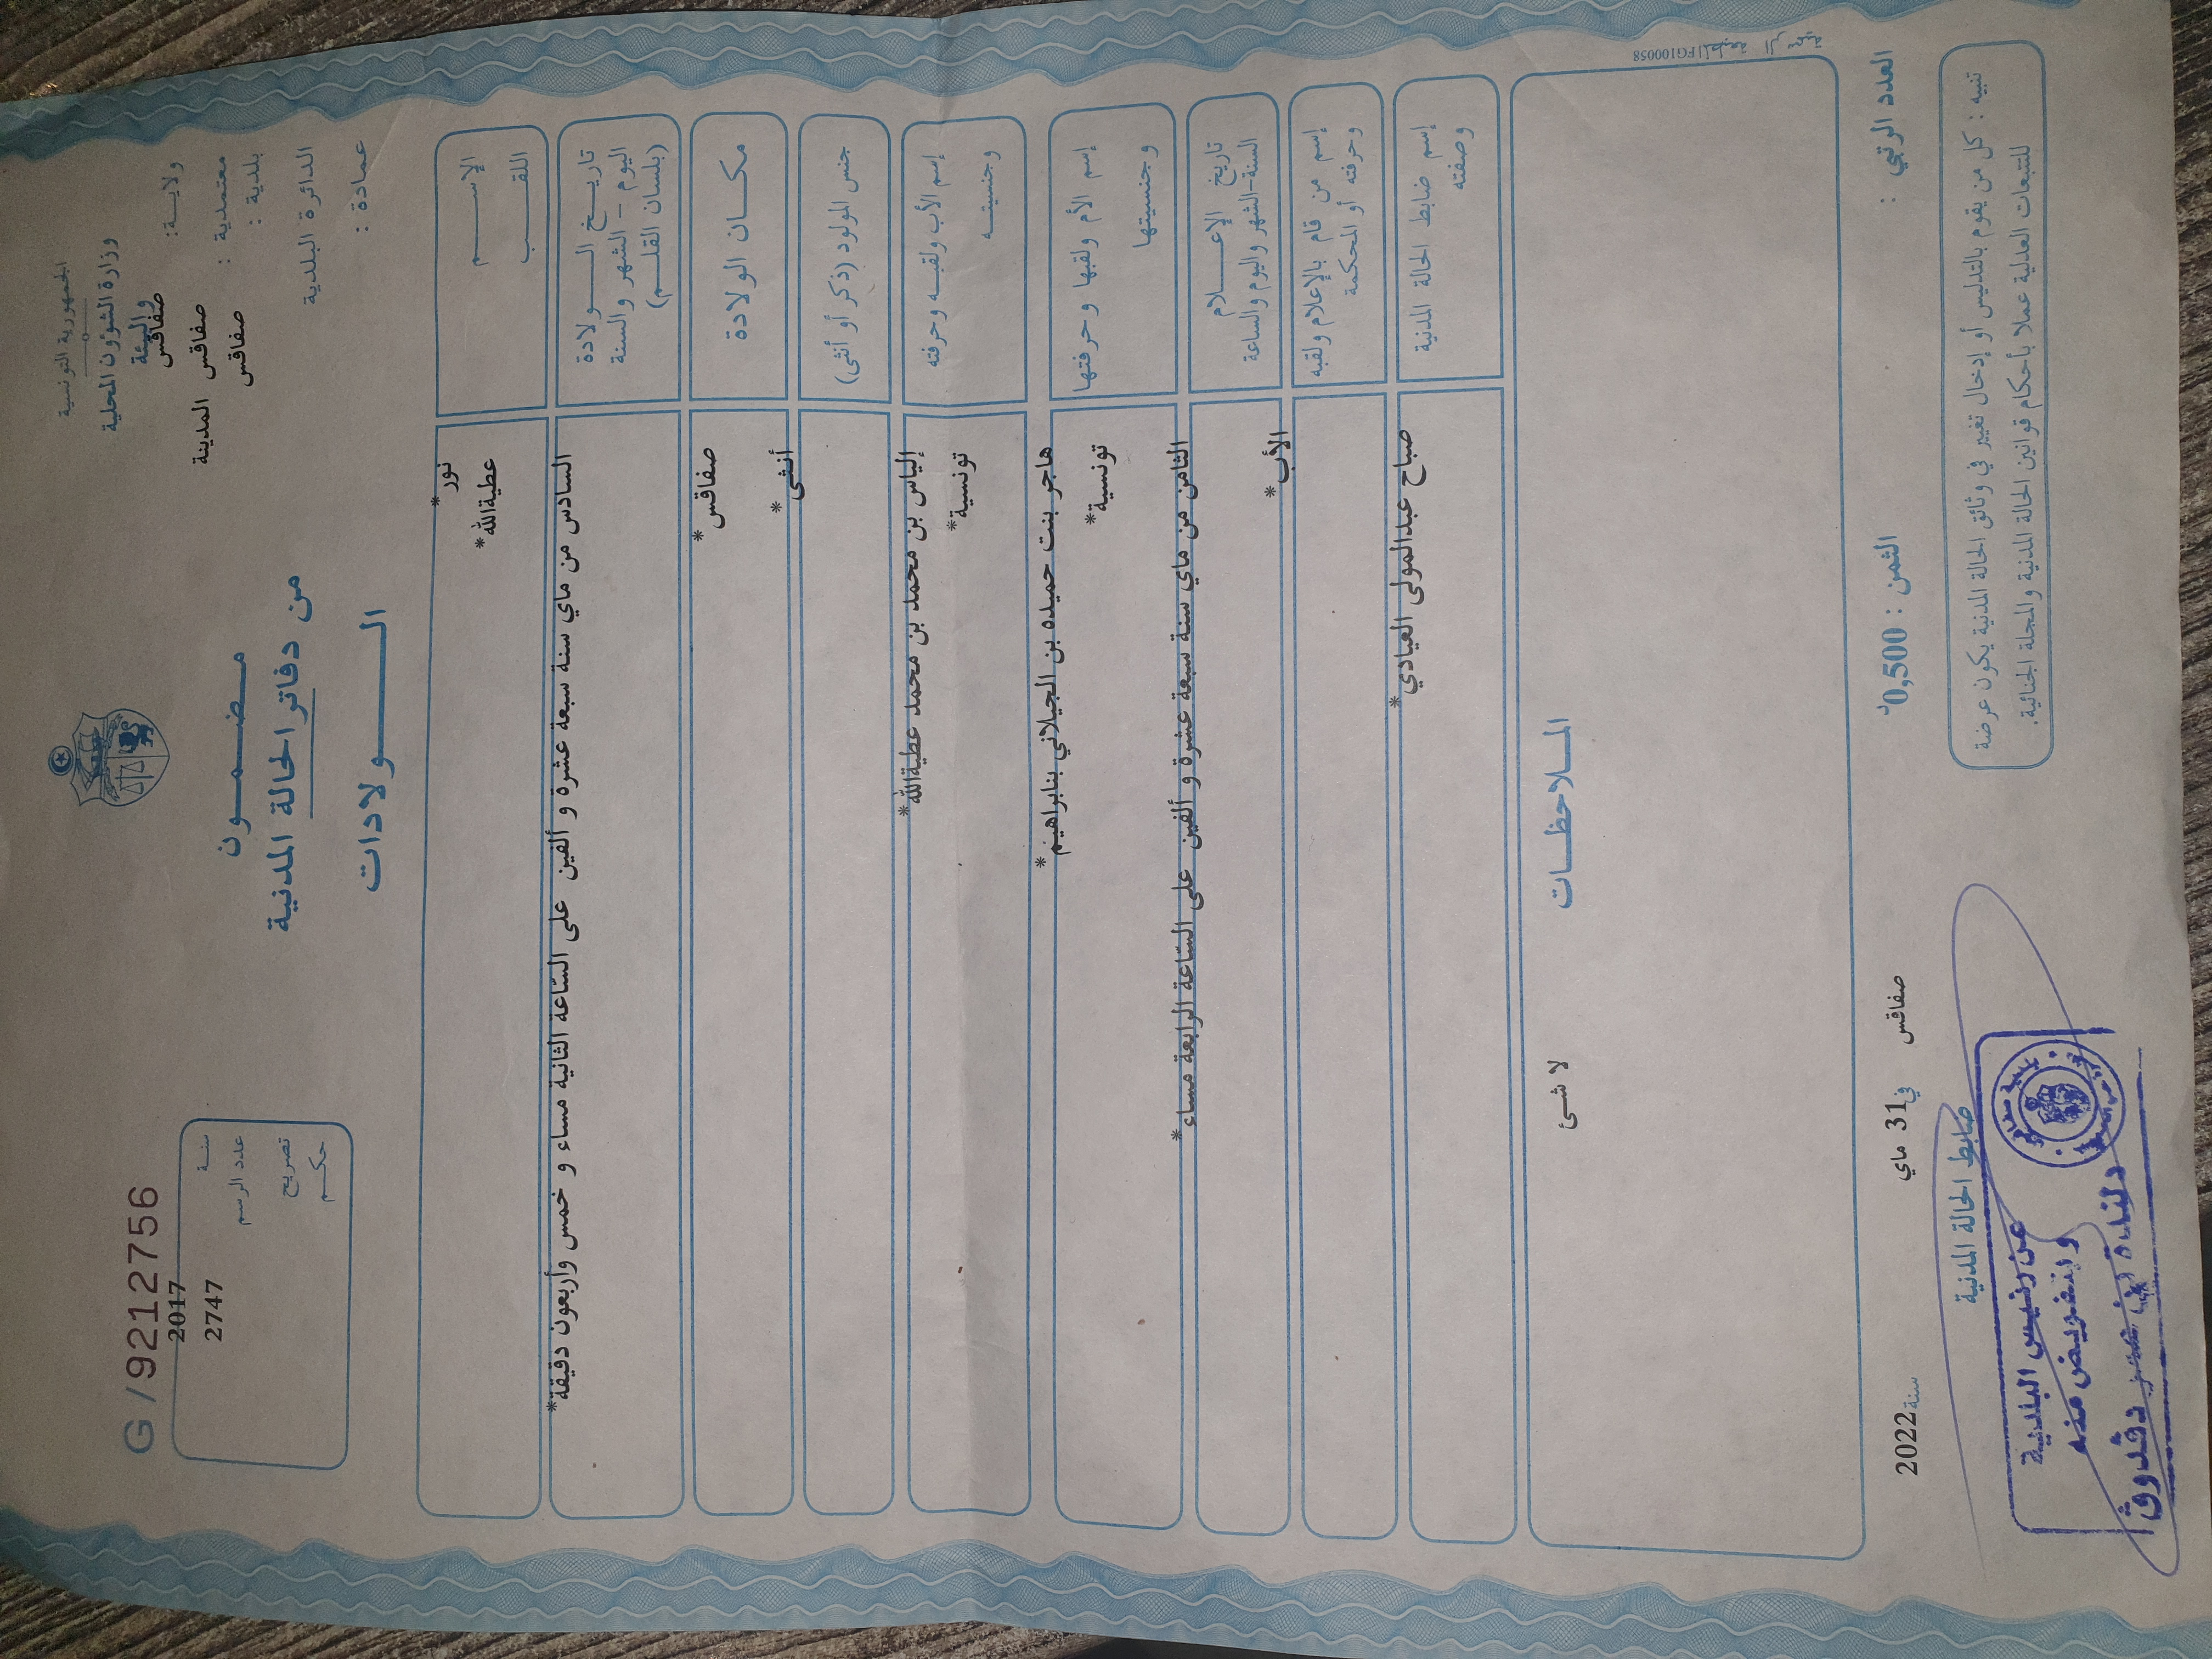 الجمهورية التونسية
وزارة الشؤون المحلية
والبيئة
ولايـــة: صفاقس
معتمدية : صفاقس المدينة
بلدية : صفاقس
الدائرة البلدية
عمادة :
مـضـمـــون
من دفاتر الحالة المدنية
الــــولادات
G/9212756
سنـــة 2017
عدد الرسم 2747
تصريح
حكـــم
الإســـــم نور*
اللقـــــب عطيةالله*
تاريـــخ الـــــولادة
اليوم - الشهر والسنة
(بلسان القلـــم)
السادس من ماي سنة سبعة عشرة و ألفين على السّاعة الثانية مساء و خمس وأربعون دقيقة*
مكـــان الولادة صفاقس*
جنس المولود (ذكر أو أنثى) أنثى*
إسم الأب ولقبـــه وحرفته
إلياس بن محمد بن محمد عطيةالله*
وجنسيتـــه تونسية*
إسم الأم ولقبها وحرفتها
هاجر بنت حميده بن الجيلاني بنابراهيم*
وجنسيتها تونسية*
تاريخ الإعـــــلام
السنة-الشهر واليوم والساعة
الثامن من ماي سنة سبعة عشرة و ألفين على السّاعة الرابعة مساء*
إسم من قام بالإعلام ولقبه
وحرفته أو المحكمة
الأب*
إسم ضابط الحالة المدنية
وصفته
صباح عبدالمولى العيادي*
المـــلاحظـــات
لا شئ
FG100058
العدد الرتبي :
الثمن : 0,500د
صفاقس في 31 ماي سنة 2022
تنبيه : كل من يقوم بالتدليس أو إدخال تغيير في وثائق الحالة المدنية يكون عرضة
للتتبعات العدلية عملا بأحكام قوانين الحالة المدنية والمجلة الجنائية.
ضابط الحالة المدنية
عن رئيس البلدية
وبتفويض منه
دلندة
دقدوق